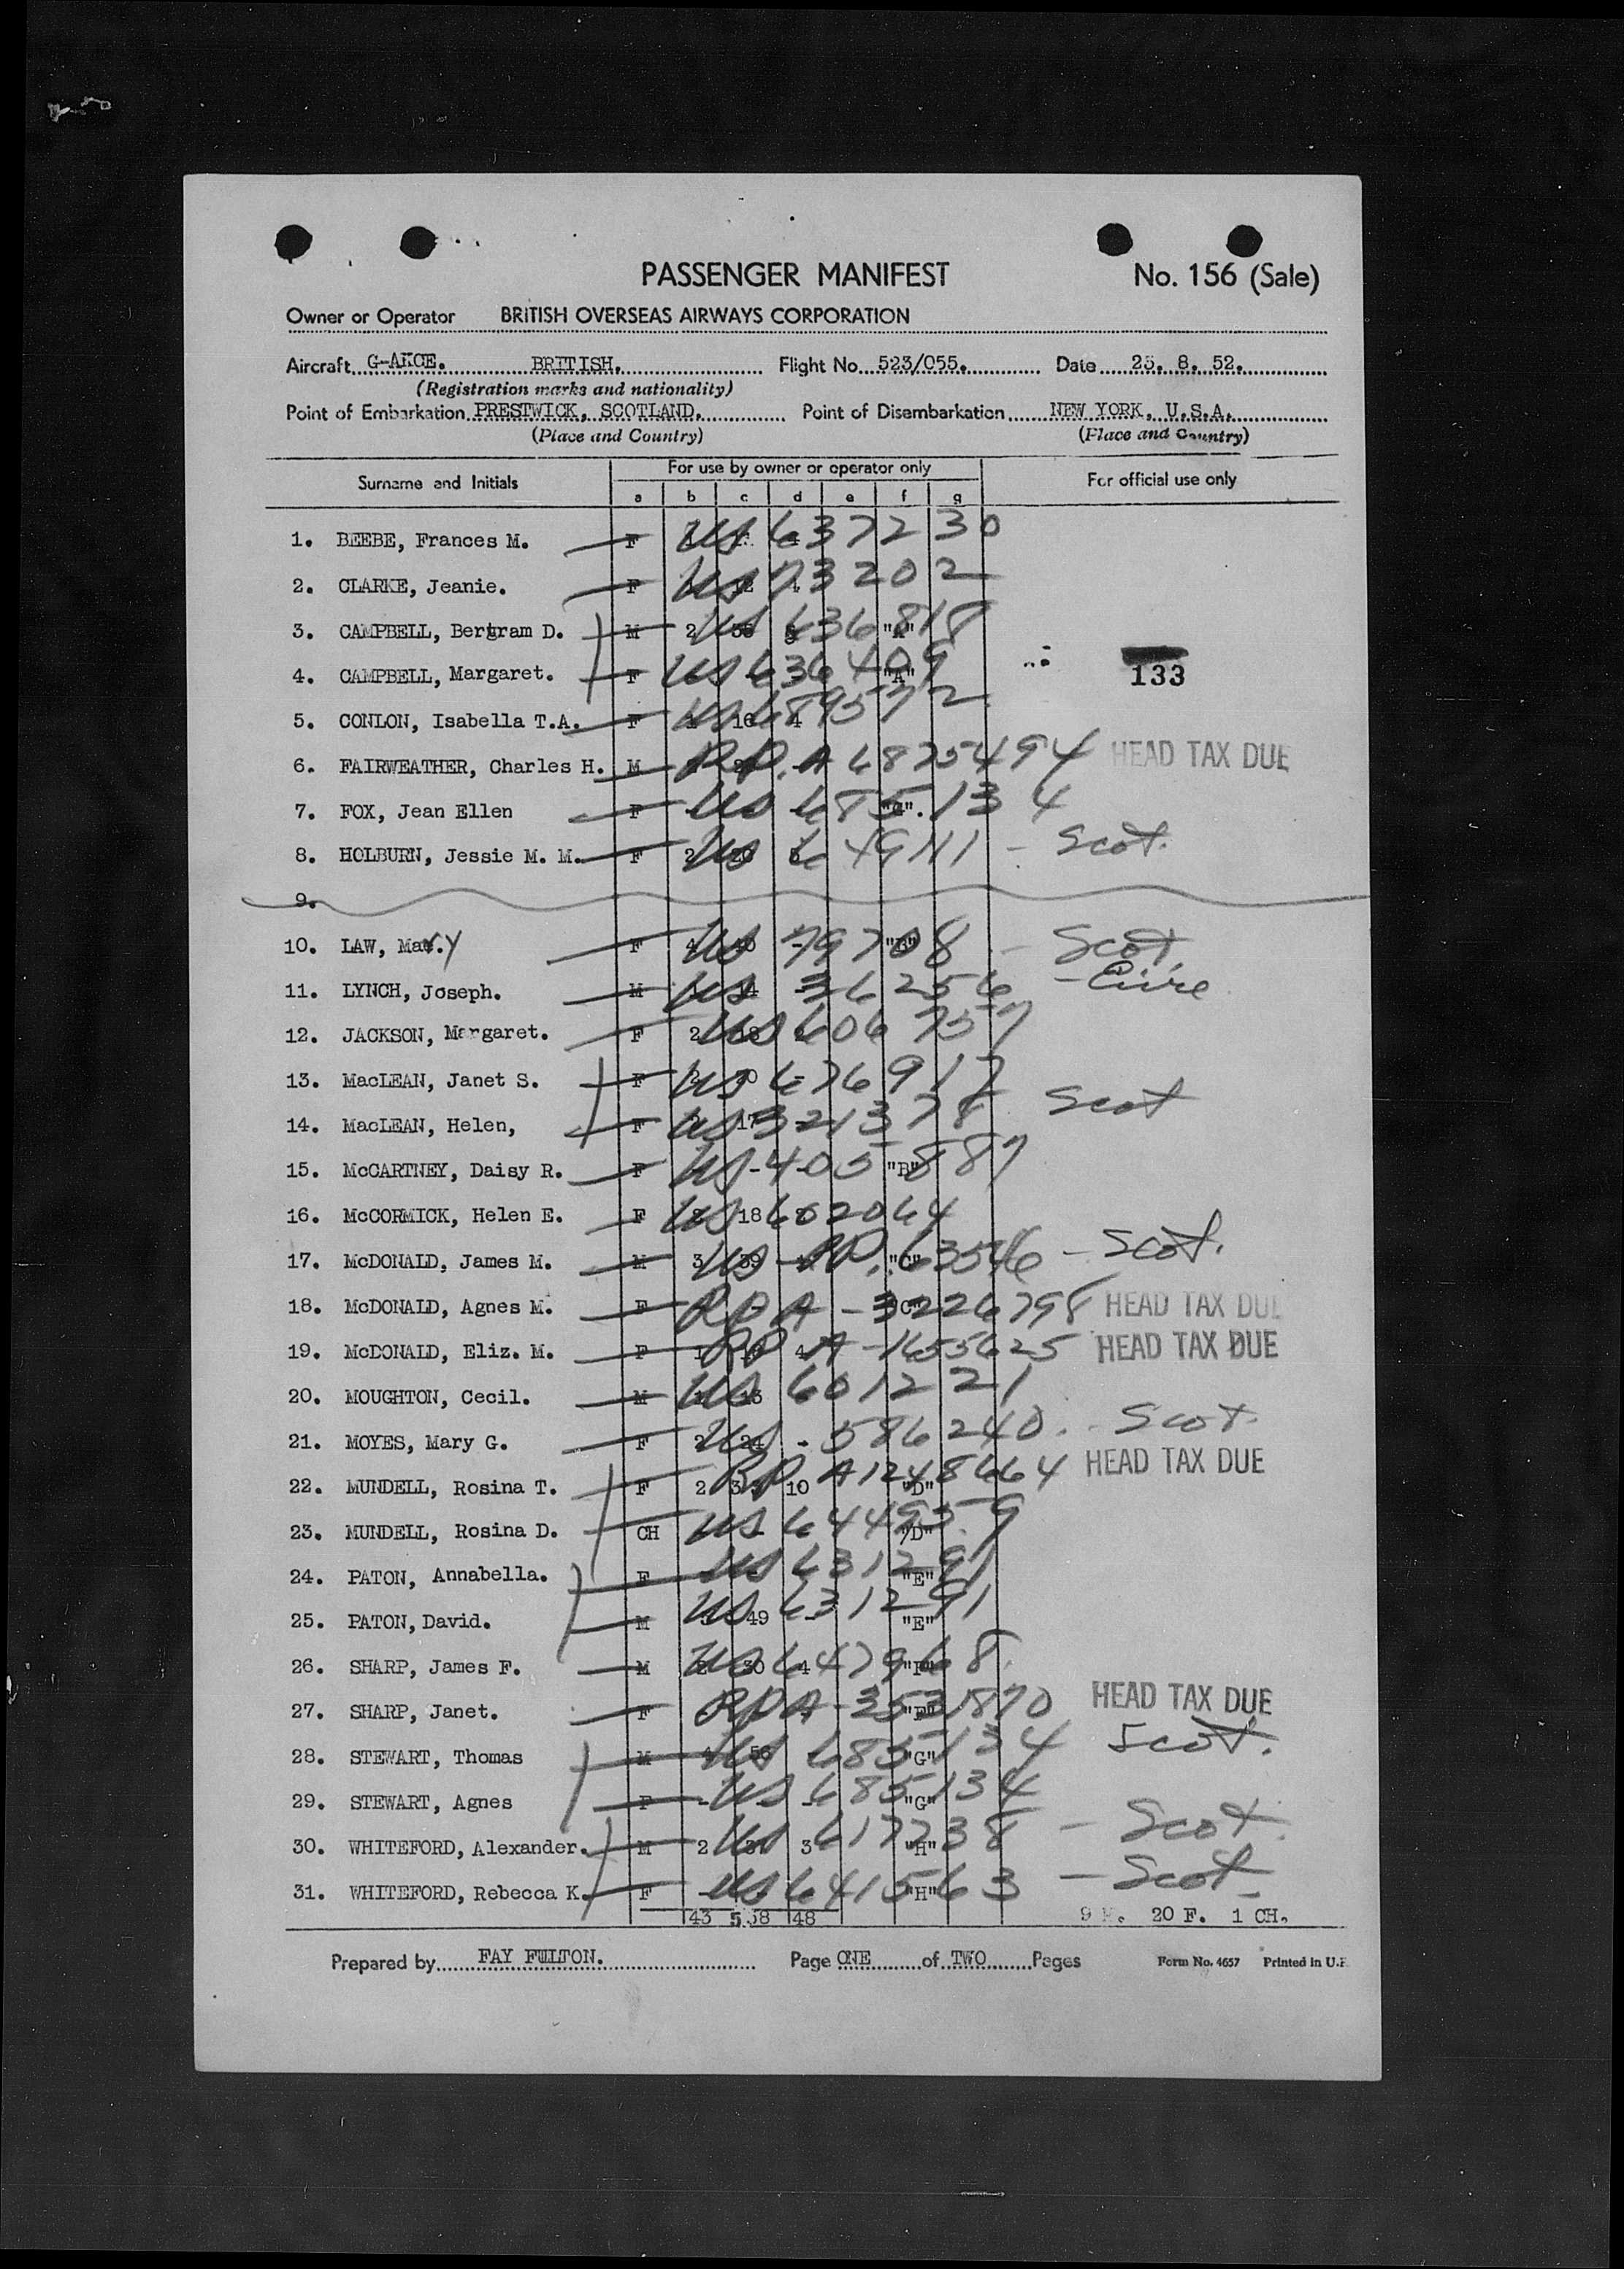 PASSENGER MANIFEST No. 156 (Sale)
Owner or Operator BRITISH OVERSEAS AIRWAYS CORPORATION
Aircraft G-AKCE. BRITISH. Flight No. 523/055. Date 8. 52.
(Registration marks and nationality)
Point of Embarkation PRESTWICK, SCOTLAND. Point of Disembarkation NEW YORK, U.S.A.
(Place and Country) (Place and Country)
For use by owner or operator only
Surname and Initials For official use only
a b c d e f g
1. BEEBE, Frances M. F US 6372230
2. CLARKE, Jeanie. F US 73202
3. CAMPBELL, Bertram D. M 2 US 636818 "A"
4. CAMPBELL, Margaret. F US 636409 "A" 133
5. CONLON, Isabella T.A. F US 16 4
6. FAIRWEATHER, Charles H. M RP. A 6875494 HEAD TAX DUE
7. FOX, Jean Ellen F US 685134
8. HOLBURN, Jessie M. M. F 2 US 649111 - Scot.
9.
10. LAW, Mary F US 79708 "B" - Scot
11. LYNCH, Joseph. M US 362556 - Eire
12. JACKSON, Margaret. F 2 US 606757
13. MacLEAN, Janet S. F US 676917
14. MacLEAN, Helen, F US 321378 17 Scot
15. McCARTNEY, Daisy R. F US - 405887 "B"
16. McCORMICK, Helen E. F US 18 602064
17. McDONALD, James M. M 3 US 39 PP. 63546 "C" - Scot.
18. McDONALD, Agnes M. F RPA - 3226798 "C" HEAD TAX DUE
19. McDONALD, Eliz. M. F 1 RP A - 1655625 4 HEAD TAX DUE
20. MOUGHTON, Cecil. M US 601221
21. MOYES, Mary G. F 2 US 24 - 586240. - Scot.
22. MUNDELL, Rosina T. F 2 RP A1248664 10 "D" HEAD TAX DUE
23. MUNDELL, Rosina D. CH US 644959 "D"
24. PATON, Annabella. F US 631291 "E"
25. PATON, David. M US 49 631291 "E"
26. SHARP, James F. M US 30 647968 "F"
27. SHARP, Janet. F RPA - 3531870 "F" HEAD TAX DUE
28. STEWART, Thomas M US 56 685134 "G" Scot.
29. STEWART, Agnes F - US - 685134 "G"
30. WHITEFORD, Alexander. M 2 US 3 617238 "H" - Scot.
31. WHITEFORD, Rebecca K. F - US 641563 "H" - Scot
43 538 48 9 M. 20 F. 1 CH.
Prepared by FAY FULTON. Page ONE of TWO Pages Form No. 4657 Printed in U.K.